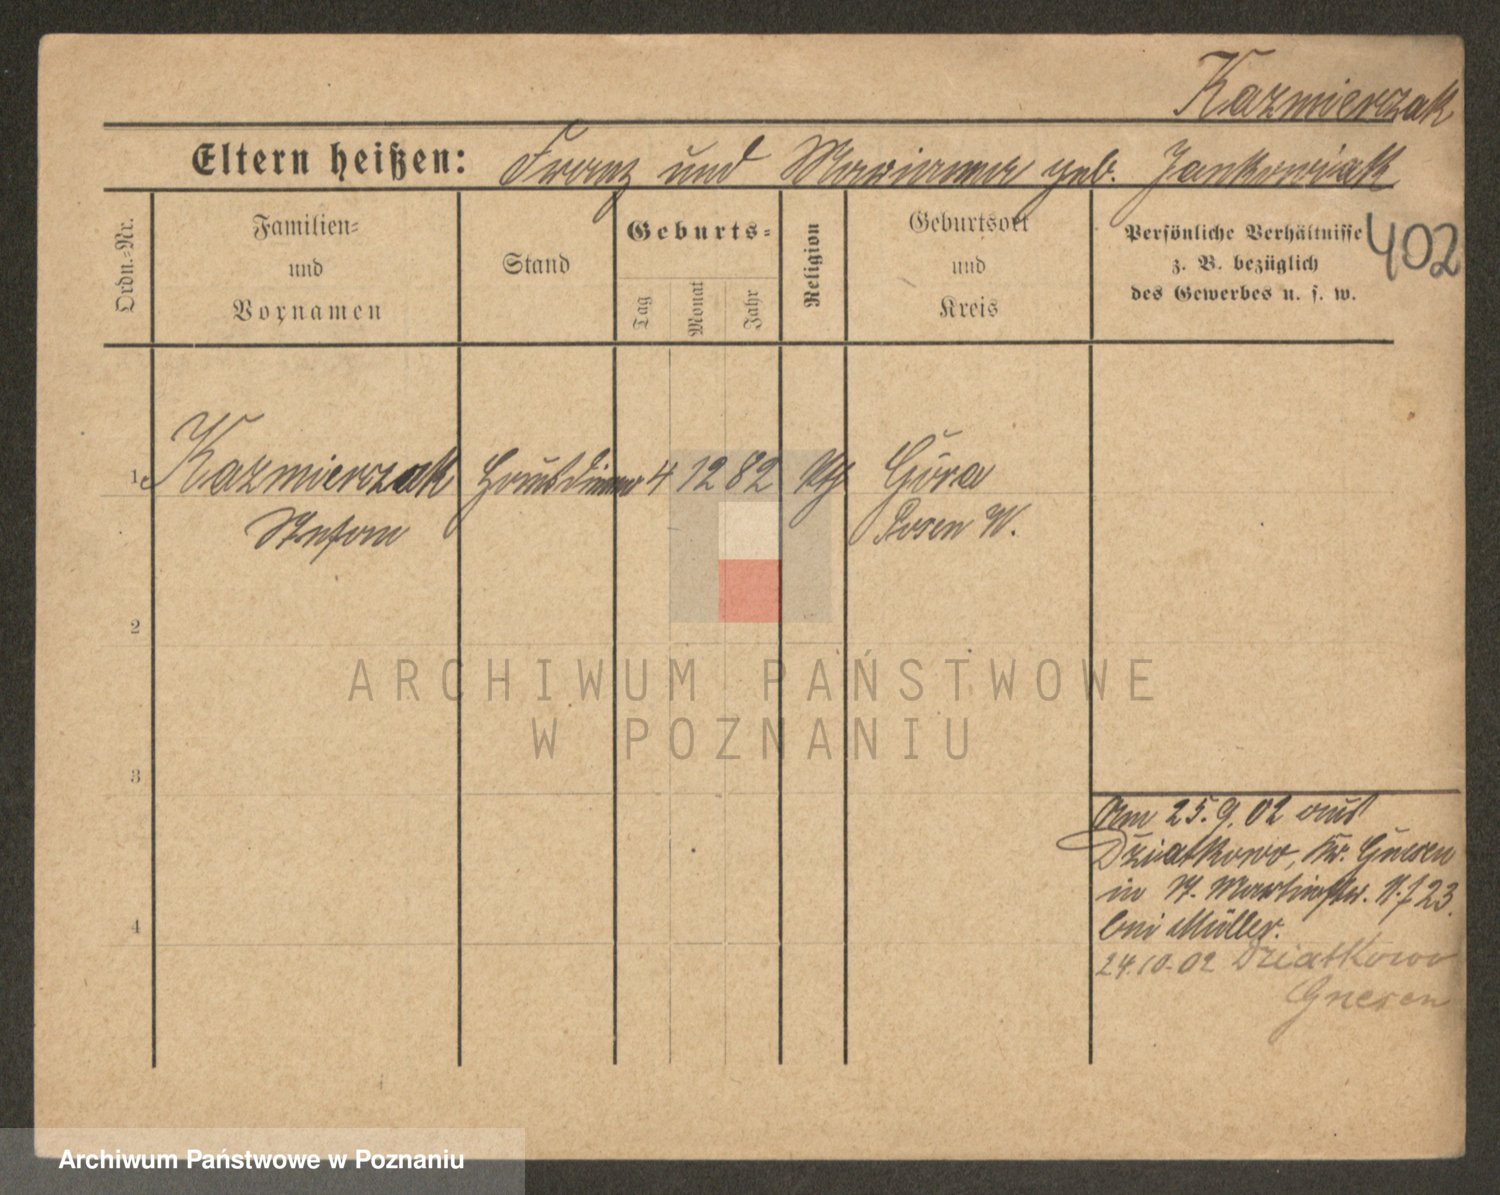 Kazmierczak
Eltern heißen: Franz und Marianna geb. Jankowiak
402
Ordn.-Nr.
Familien-
und
Vornamen
Stand
Geburts-
Tag
Monat
Jahr
Religion
Geburtsort
und
Kreis
Persönliche Verhältnisse
z. B. bezüglich
des Gewerbes u. s. w.
1. Kazmierczak Hausdiener 4 12 82 kth Góra
Stefan Posen W.
2
3
4
Am 25.9.02 aus
Dziatkowo, Kr. Gnesen
in St. Martinstr. N. 23.
bei Müller.
24.10.02 Dziatkowo
Gnesen
ARCHIWUM PAŃSTWOWE
W POZNANIU
Archiwum Państwowe w Poznaniu